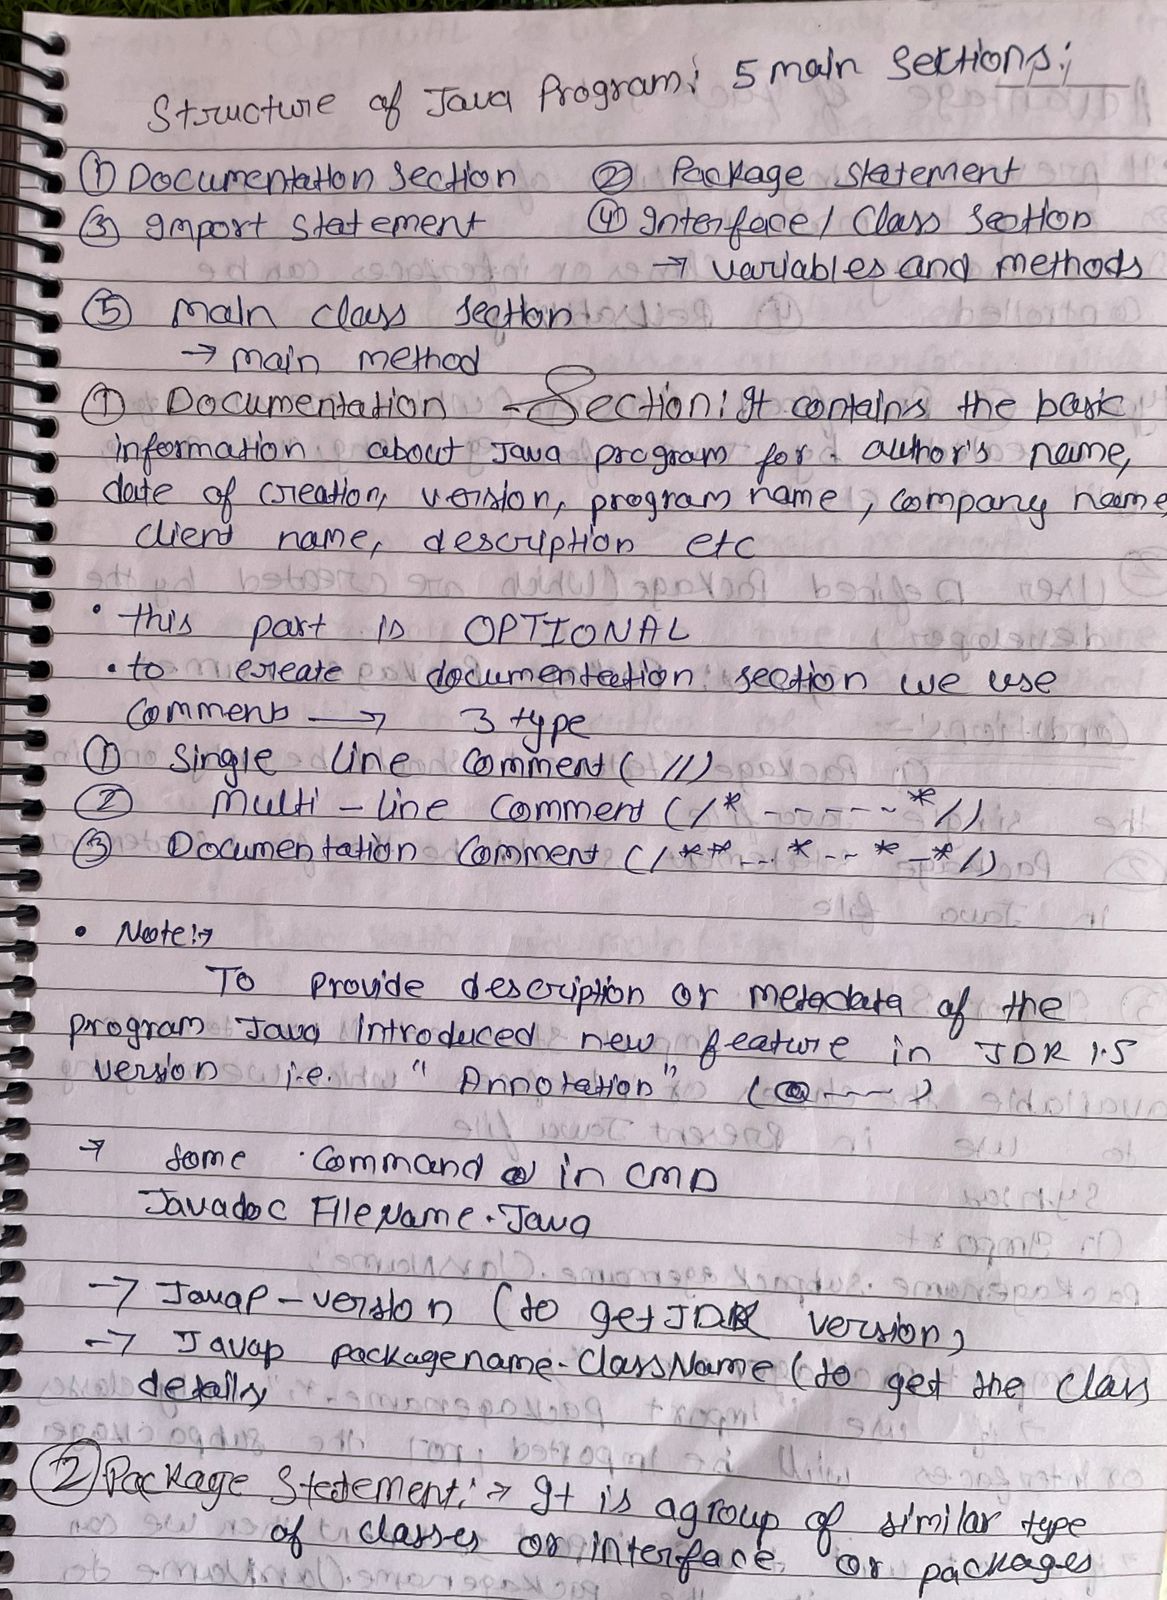 Structure of Java Program: 5 main Sections:
① Documentation Section ② Package Statement
③ Import Statement ④ Interface / Class Section
→ variables and methods
⑤ Main class Section
→ main method
① Documentation - Section: It contains the basic
information about Java program for author's name,
date of creation, version, program name, company name
client name, description etc
• this part is OPTIONAL
• to create documentation section we use
Comments → 3 type
① Single Line Comment ( // )
② Multi - Line Comment (/* ------ */)
③ Documentation Comment (/** -- * -- * - */)
• Note:→
To provide description or metadata of the
program Java introduced new feature in JDK 1.5
version i.e. "Annotation" (@----)
→ Some Command in CMD
Javadoc FileName.Java
→ Javap -version (to get JDK version)
→ Javap packagename.ClassName (to get the class
details)
② Package Statement:→ It is a group of similar type
of classes or interface or packages